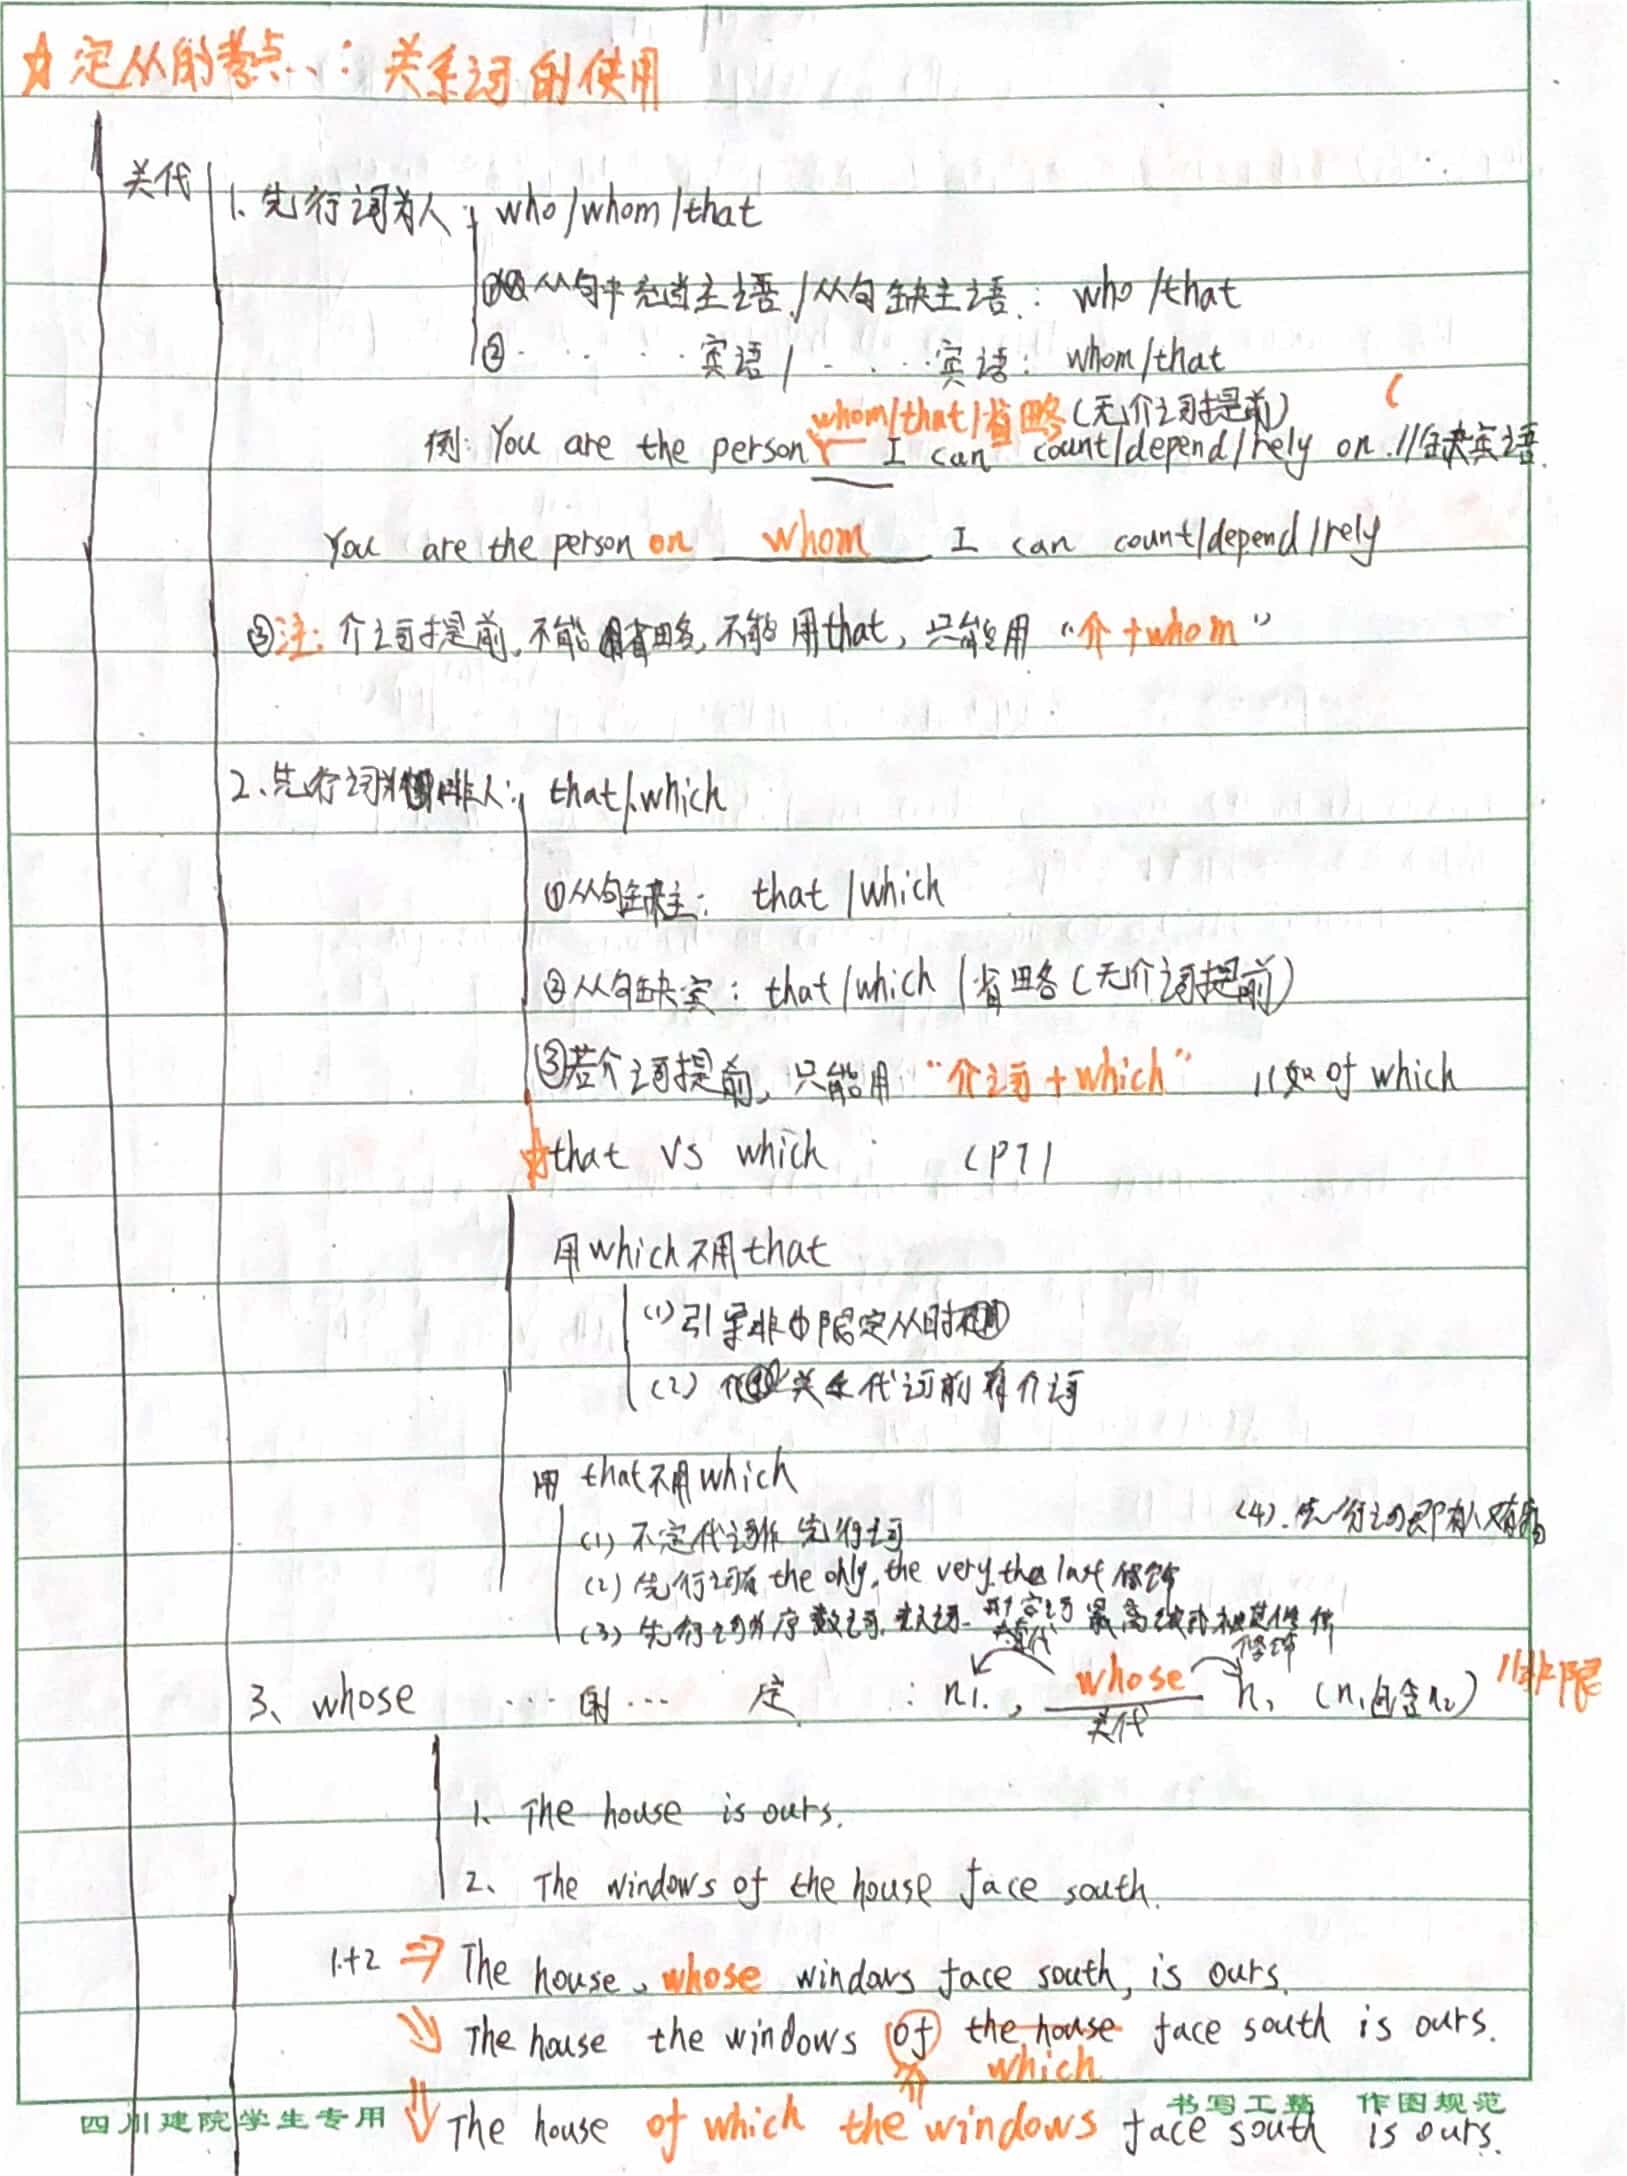 ☆定从的考点一：关系词的使用
关代
1. 先行词为人: who/whom/that
① 从句中充当主语/从句缺主语: who/that
② · · · · 宾语/ · · · · 宾语: whom/that
whom/that/省略(无介词提前)
例: You are the person I can count/depend/rely on.//缺宾语.
You are the person on whom I can count/depend/rely
③注: 介词提前,不能省略,不能用that, 只能用 "介+whom"
2、先行词为非人: that/which
①从句缺主: that/which
②从句缺宾: that/which/省略(无介词提前)
③若介词提前, 只能用 "介词+which" //如 of which
☆that VS which (P7)
用which不用that
(1)引导非限定从时
(2) 关系代词前有介词
用that不用which
(4).先行词即有人又有物
(1) 不定代词作先行词
(2) 先行词有 the only, the very, the last 修饰
(3) 先行词为序数词, 形容词最高级或被其修饰
修饰
3、whose ···的··· 定 : n1., whose n, (n1包含n2) //非限
关代
1、The house is ours.
2、The windows of the house face south.
1+2 ⇒ The house, whose windows face south, is ours.
⇒ The house the windows of the house face south is ours.
which
⇓ The house of which the windows face south is ours.
四川建院学生专用 书写工整 作图规范